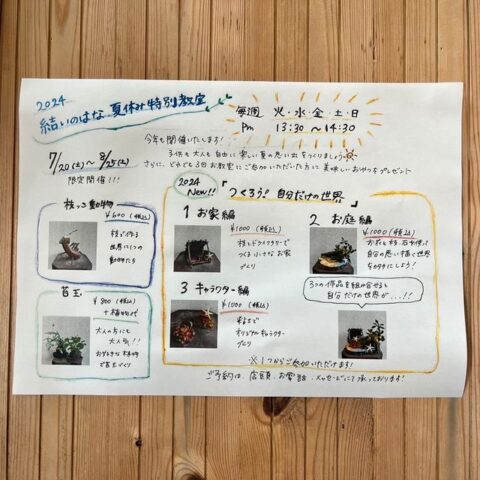 2024
結いのはな 夏休み特別教室
毎週 火・水・金・土・日
Pm 13:30 〜 14:30
今年も開催いたします!
7/20(土)〜 8/25(日)
子供も大人も自由に楽しい夏の思い出をつくりましょう
さらに、どれでも3回お教室にご参加いただいた方に美味しいおやつをプレゼント
限定開催!!!
2024
New!!
「つくろう!自分だけの世界」
枝っこ動物
¥600(税込)
枝で作る
世界に1つの
動物たち
苔玉
¥800(税込)
+植物代
大人の方にも
大人気!!
お好きな植物
で苔玉づくり
1 お家編
¥1000(税込)
枝とドライフラワーで
つくる小さなお家
づくり
2 お庭編
¥1000(税込)
お花と材、石を使って
自分の思い描く世界
を形にしよう!
3 キャラクター編
¥1000(税込)
オリジナルキャラクター
づくり
3つの作品を組み合せると
自分だけの世界が...!!
※1つからご参加いただけます!
ご予約は、店頭、お電話、メッセージにて承っております!